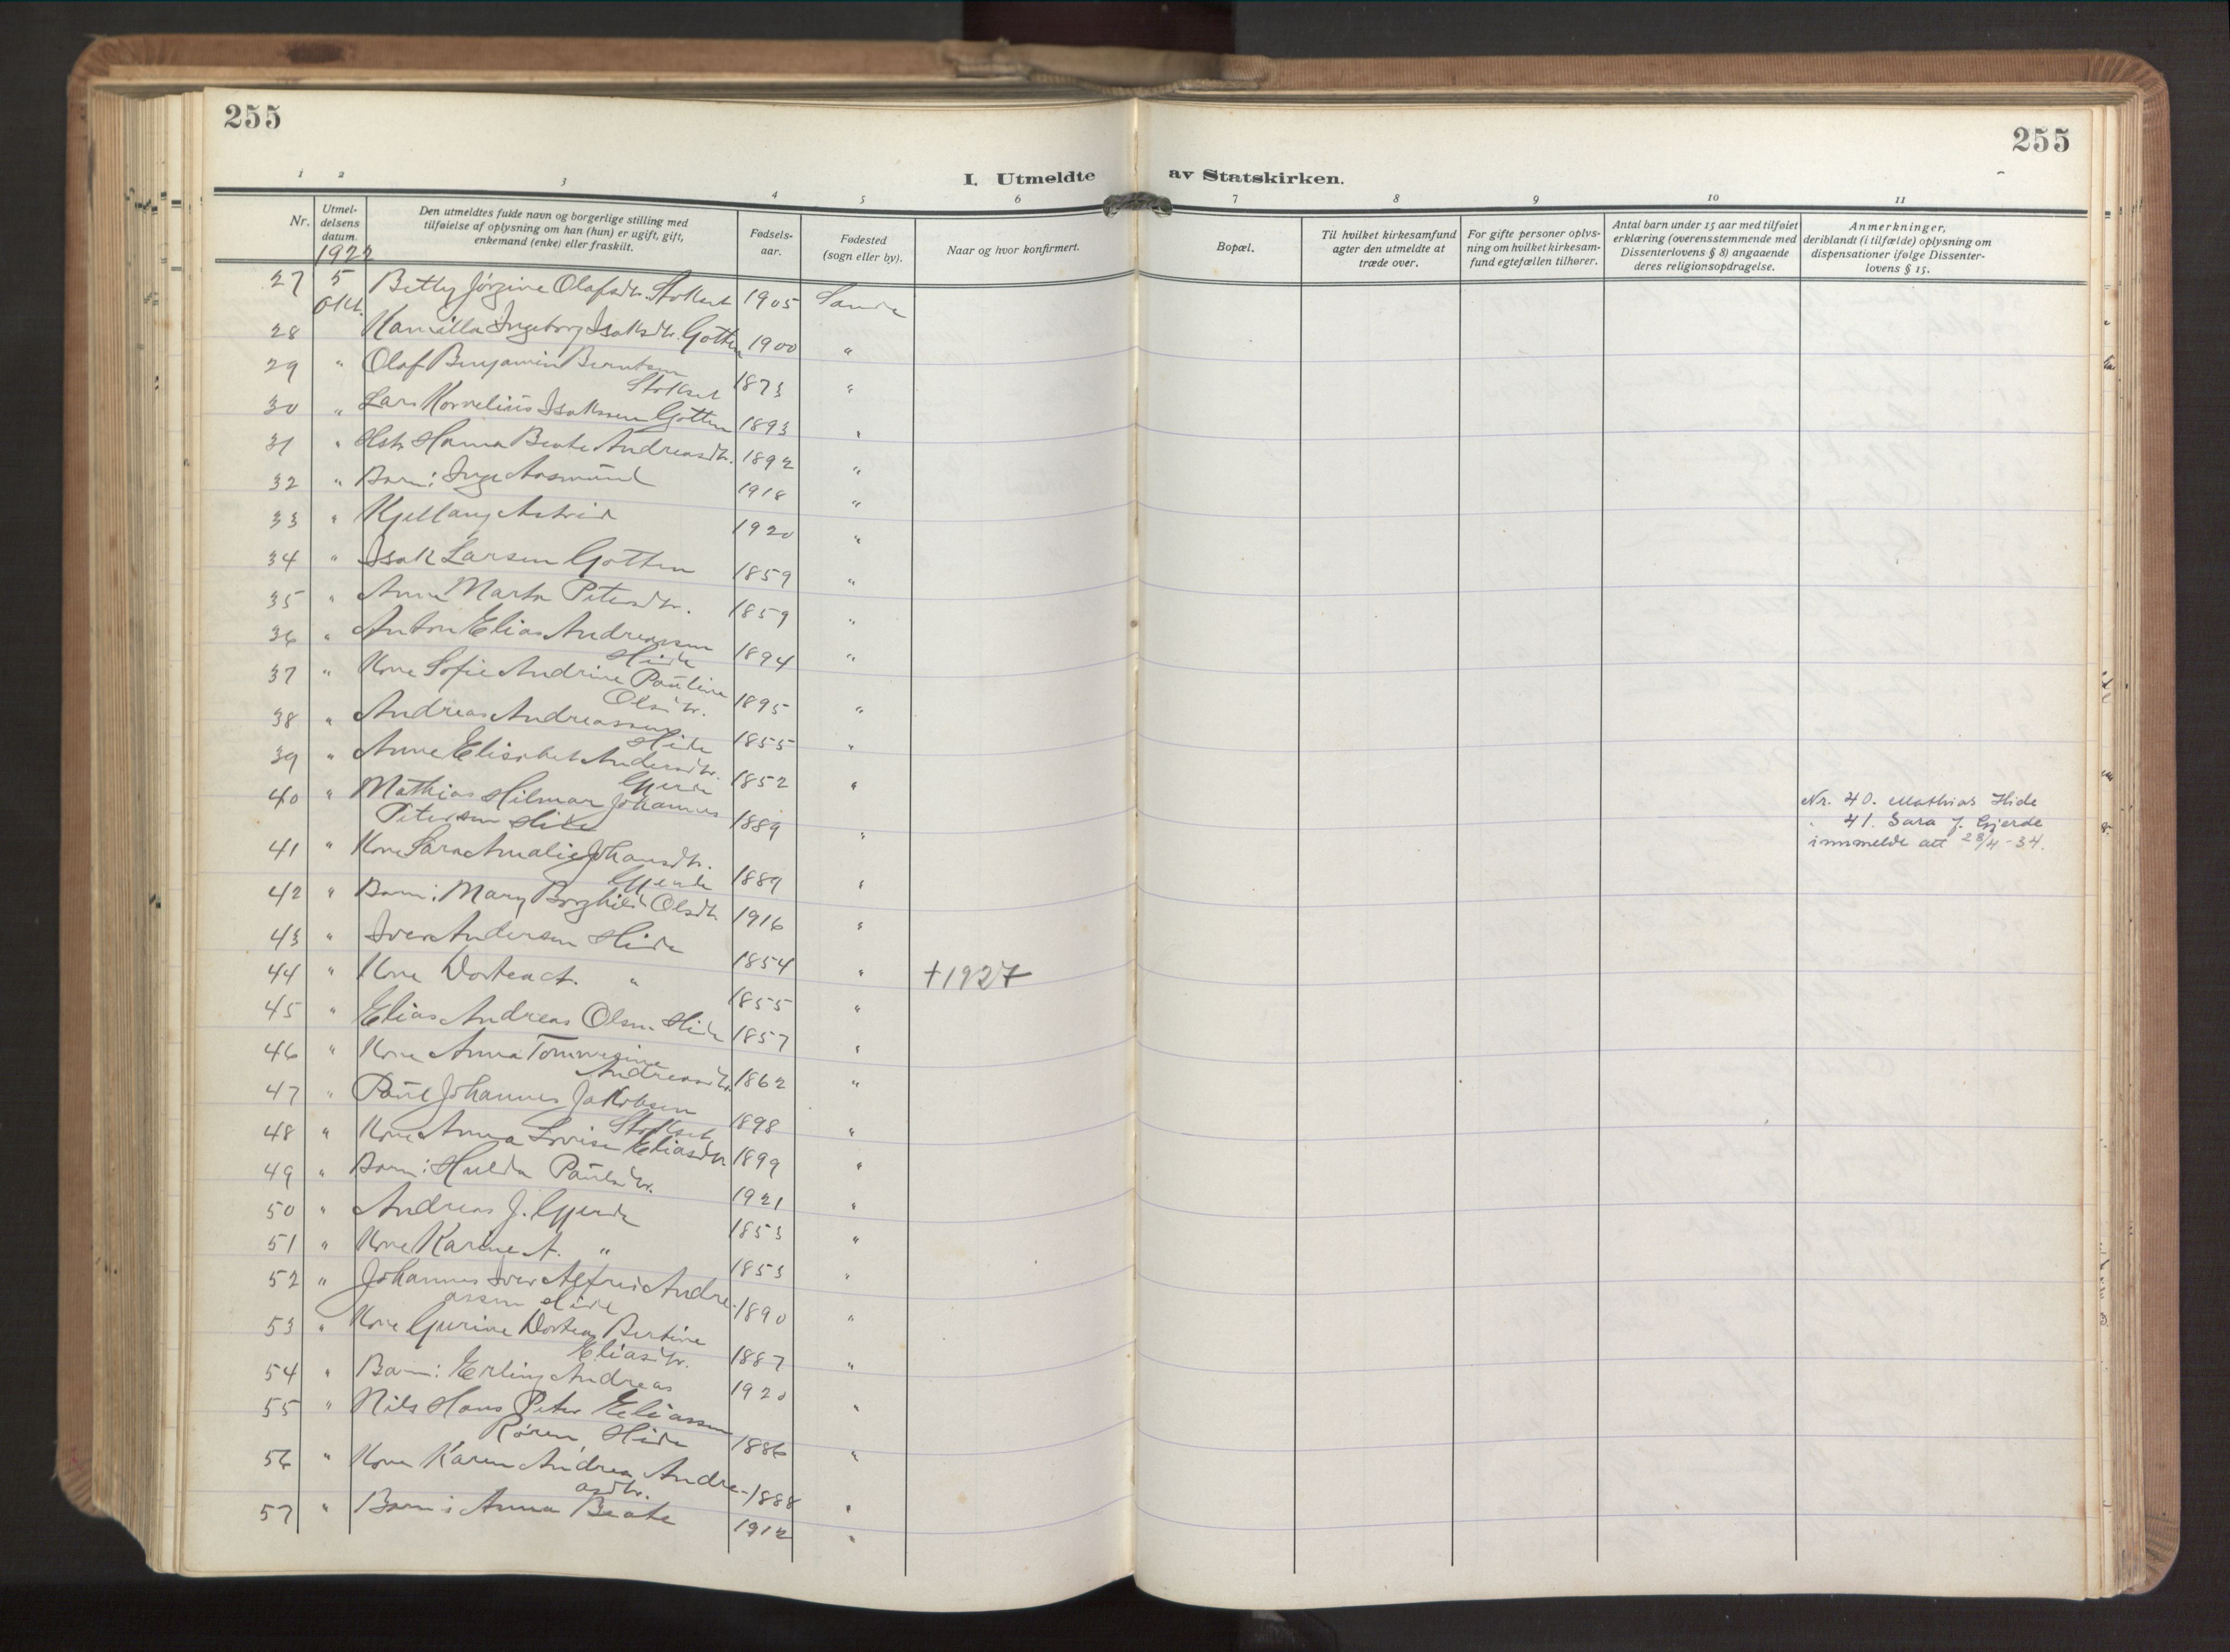 255
255
I. Utmeldte av Statskirken.
1 2 3 4 5 6 7 8 9 10 11
Nr.
Utmel-
delsens
datum.
1922
Den utmeldtes fulde navn og borgerlige stilling med
tilføielse af oplysning om han (hun) er ugift, gift,
enkemand (enke) eller fraskilt.
Fødsels-
aar.
Fødested
(sogn eller by).
Naar og hvor konfirmert.
Bopæl.
Til hvilket kirkesamfund
agter den utmeldte at
træde over.
For gifte personer oplys-
ning om hvilket kirkesam-
fund egtefællen tilhører.
Antal barn under 15 aar med tilføiet
erklæring (overensstemmende med
Dissenterlovens § 8) angaaende
deres religionsopdragelse.
Anmerkninger,
deriblandt (i tilfælde) oplysning om
dispensationer ifølge Dissenter-
lovens § 15.
27 5 Betty Jørgine Olafsdtr. Stokset 1905 Sande
Okt.
28 Kamilla Ingeborg Isaksdtr. Gotten 1900 "
29 " Olaf Benjamin Berntsen
Stokset 1873 "
30 " Lars Kornelius Isaksen Gotten 1893 "
31 " Hstr Hanna Beate Andreasdtr. 1892 "
32 " Barn: Inge Aasmund 1918 "
33 " Kjellaug Astrid 1920 "
34 " Isak Larsen Gotten 1859 "
35 " Anne Marta Petersdtr. 1859 "
36 " Anton Elias Andreassen
Hide 1894 "
37 " Kone Sofie Andrine Pauline
Olsdtr. 1895 "
38 " Andreas Andreassen
Hide 1855 "
39 " Anne Elisabet Andersdtr.
Gjerde 1852 "
40 " Mathias Hilmar Johannes
Petersen Hide 1889 "
Nr. 40. Mathias Hide
" 41. Sara J. Gjerde
innmelde att 28/4-34.
41 " Kone Sara Amalie Johansdtr.
Gjerde 1889 "
42 " Barn: Mary Borghild Olsdtr. 1916 "
43 " Iver Andersen Hide 1854 "
44 " Kone Dortea A. " 1855 " †1927
45 " Elias Andreas Olsen Hide 1857 "
46 " Kone Anna Tommegine
Andreasdtr. 1862 "
47 " Paul Johannes Jakobsen
Stokset 1898 "
48 " Kone Anna Lovise Eliasdtr 1899 "
49 " Barn: Hulda Paulsdtr. 1921 "
50 " Andreas J. Gjerde 1853 "
51 " Kone Karine A. " 1853 "
52 " Johannes Iver Alfred Andre-
assen Hide 1890 "
53 " Kone Gurine Dortea Bertine
Eliasdtr. 1887 "
54 " Barn: Erling Andreas 1920 "
55 " Nils Hans Peter Eliassen
Røren, Hide 1886 "
56 " Kone Karen Andrea Andre-
asdtr. 1888 "
57 " Barn: Anna Beate 1912 "